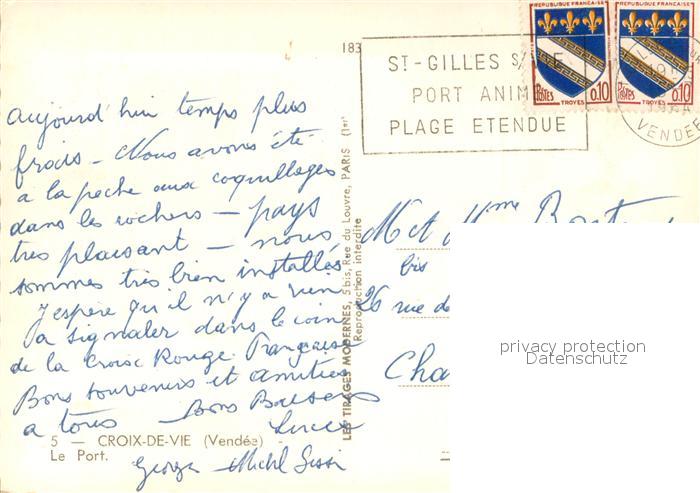 183
ST-GILLES S/ VIE
PORT ANIM
PLAGE ETENDUE
REPUBLIQUE FRANCAISE
REPUBLIQUE FRANCAISE
POSTES 0,10
TROYES
POSTES 0,10
TROYES
VENDEE
aujourd'hui temps plus
frais - Nous avons été
a la peche aux coquillages
dans les rochers - pays
tres plaisant - nous
sommes très bien installés
J'espère qu'il n'y a rien
a signaler dans le coin
de la Croix Rouge Française
Bons souvenirs et amitiés
a tous - Bons Baisers
George Michel
5 — CROIX-DE-VIE (Vendée) -
Le Port.
LES TIRAGES MODERNES, 5 bis, Rue du Louvre, PARIS (1er)
Reproduction interdite
M et Mme
bis
26 rue de
Cha
privacy protection
Datenschutz